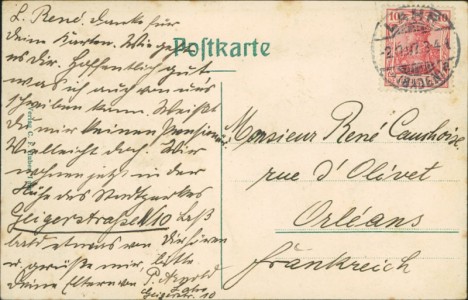 L. René, danke für
dein Karten. Wie geht
es dir. Hoffentlich gut
was ich auch von uns
schreiben kann. Weißt
du mir keinen
Vielleicht doch. Wir
wohnen jetzt in der
Nähe des Stadtparkes
Geigerstrasse 10 Laß
bald etwas von dir hören
u. grüße mir bitte
deine Eltern von P.
Lahr
Geigerstr. 10
Postkarte
10 10
LAHR
(BADEN)
Monsieur René
rue d'Olivet
Orléans
Frankreich